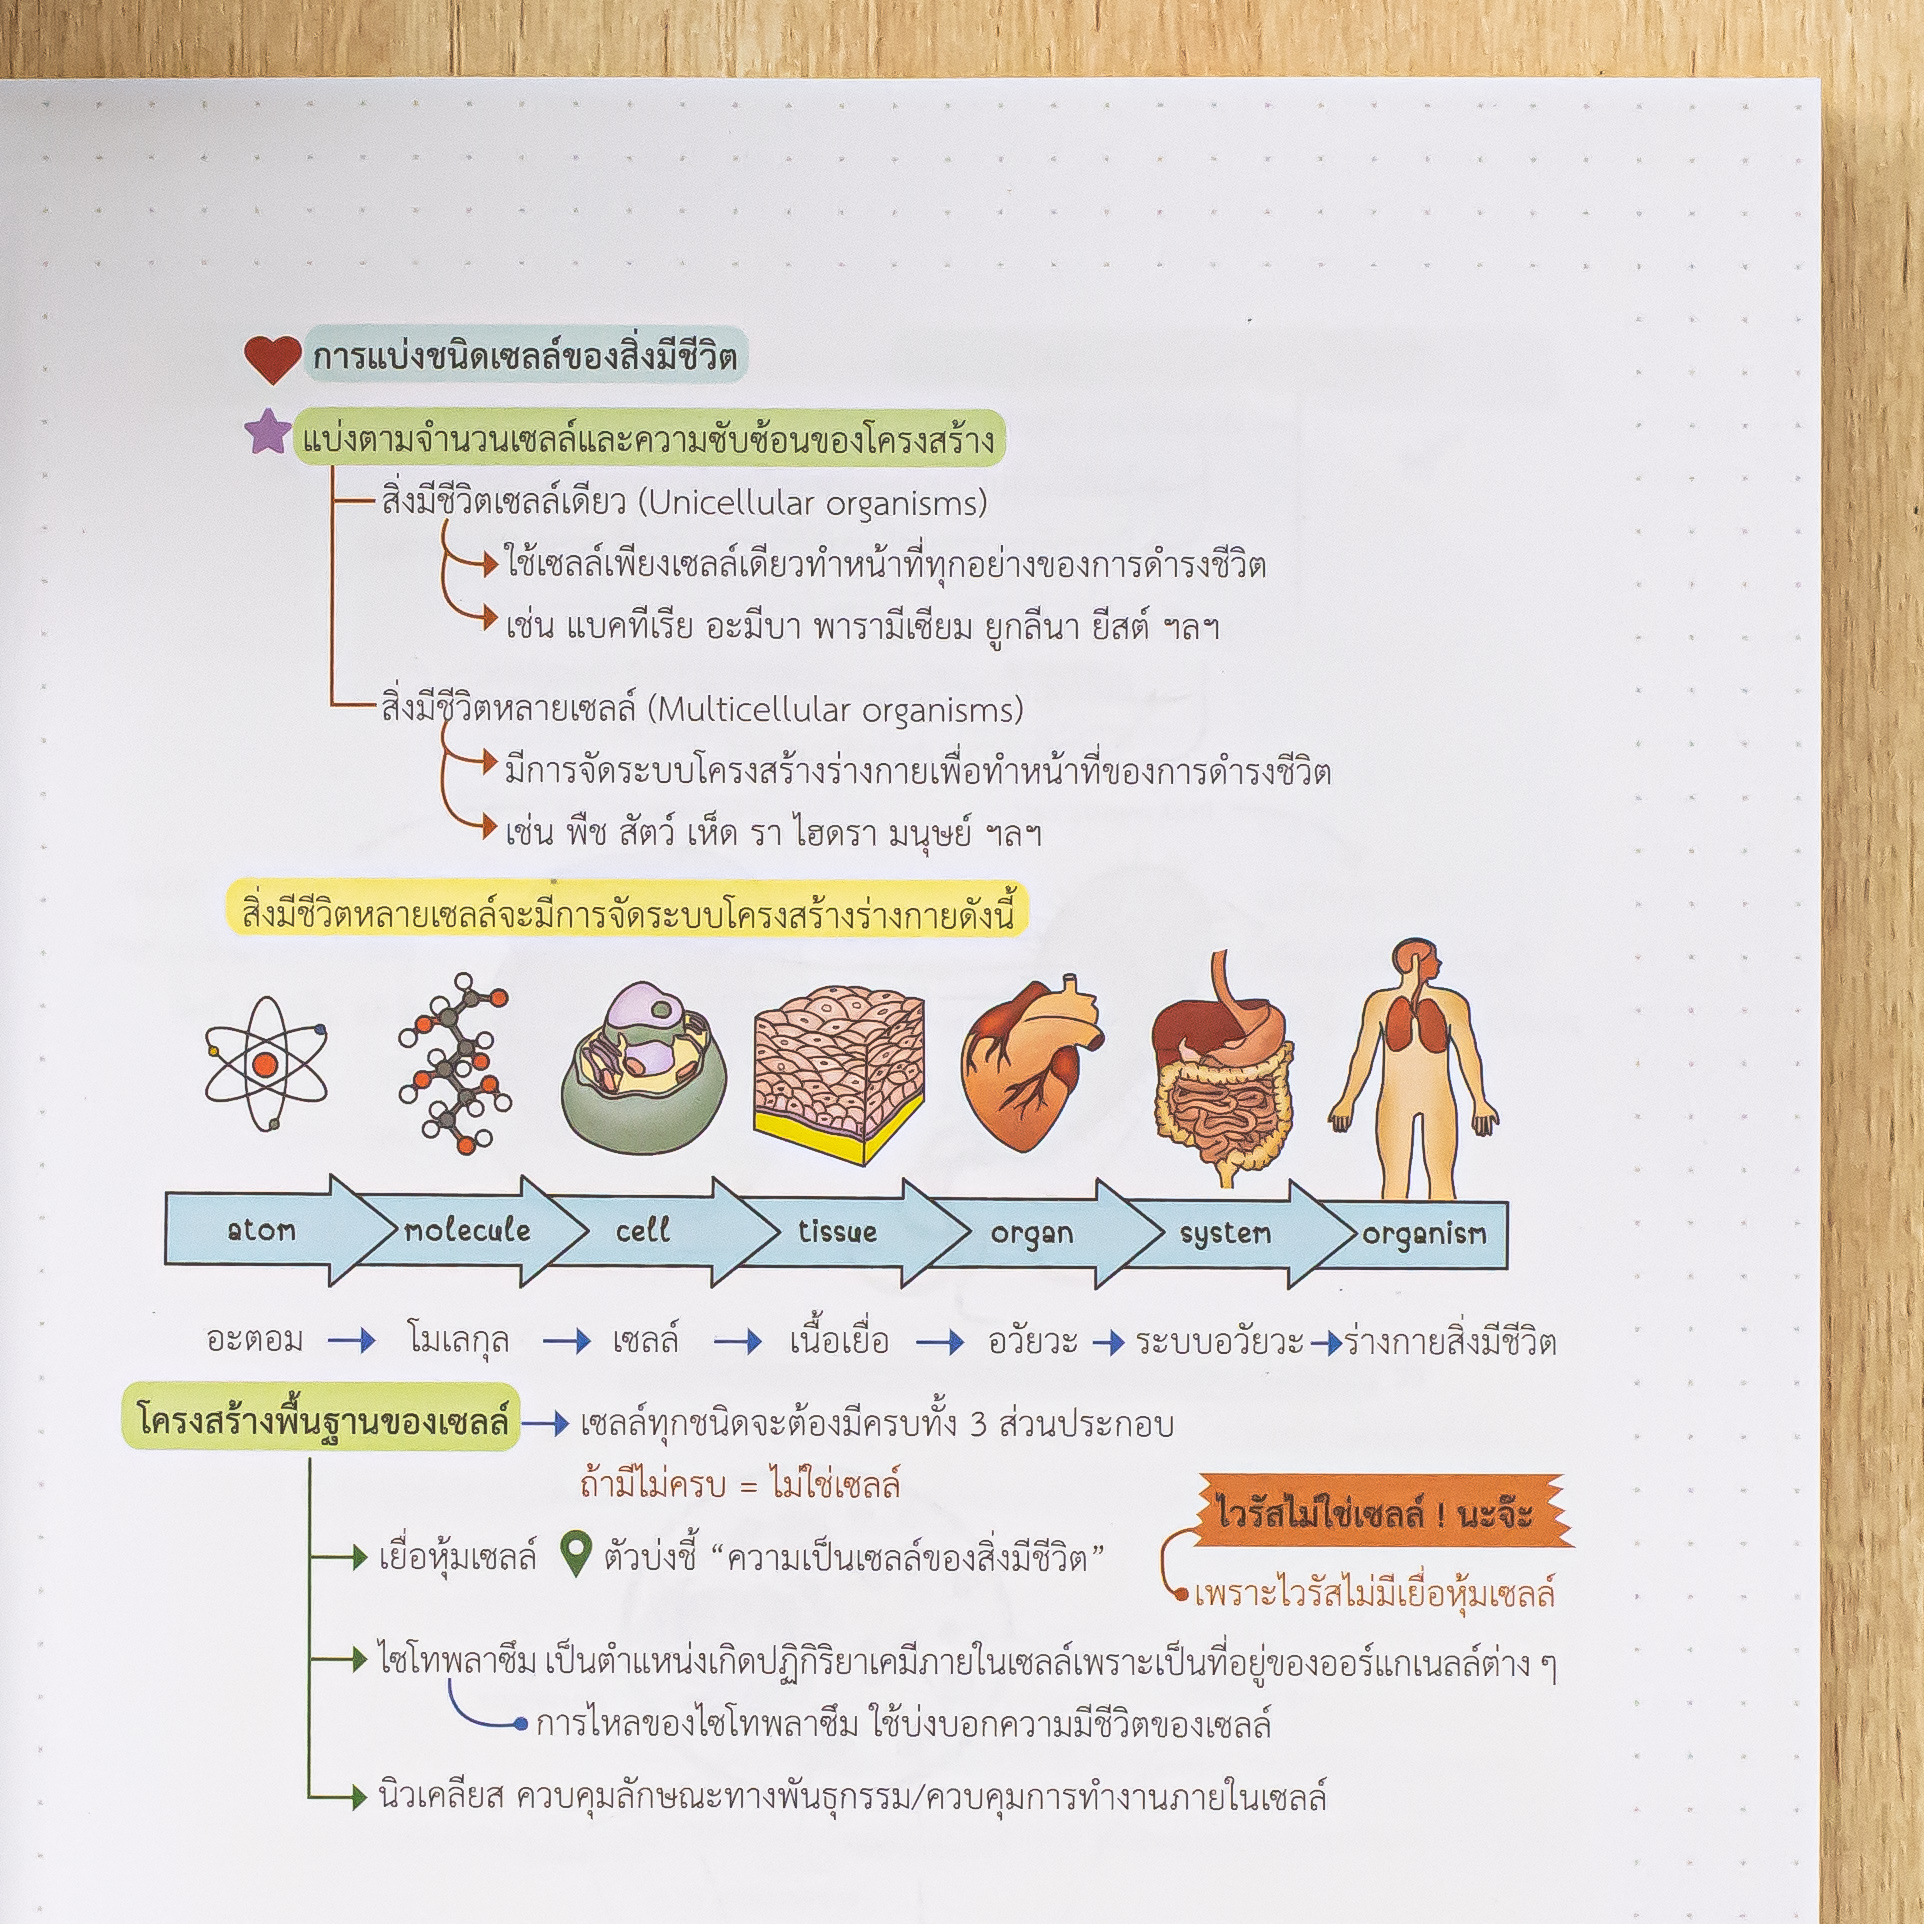 การแบ่งชนิดเซลล์ของสิ่งมีชีวิต
แบ่งตามจำนวนเซลล์และความซับซ้อนของโครงสร้าง
สิ่งมีชีวิตเซลล์เดียว (Unicellular organisms)
ใช้เซลล์เพียงเซลล์เดียวทำหน้าที่ทุกอย่างของการดำรงชีวิต
เช่น แบคทีเรีย อะมีบา พารามีเซียม ยูกลีนา ยีสต์ ฯลฯ
สิ่งมีชีวิตหลายเซลล์ (Multicellular organisms)
มีการจัดระบบโครงสร้างร่างกายเพื่อทำหน้าที่ของการดำรงชีวิต
เช่น พืช สัตว์ เห็ด รา ไฮดรา มนุษย์ ฯลฯ
สิ่งมีชีวิตหลายเซลล์จะมีการจัดระบบโครงสร้างร่างกายดังนี้
atom molecule cell tissue organ system organism
อะตอม → โมเลกุล → เซลล์ → เนื้อเยื่อ → อวัยวะ → ระบบอวัยวะ → ร่างกายสิ่งมีชีวิต
โครงสร้างพื้นฐานของเซลล์ → เซลล์ทุกชนิดจะต้องมีครบทั้ง 3 ส่วนประกอบ
ถ้ามีไม่ครบ = ไม่ใช่เซลล์
ไวรัสไม่ใช่เซลล์ ! นะจ๊ะ
เยื่อหุ้มเซลล์ ตัวบ่งชี้ “ความเป็นเซลล์ของสิ่งมีชีวิต”
เพราะไวรัสไม่มีเยื่อหุ้มเซลล์
ไซโทพลาซึม เป็นตำแหน่งเกิดปฏิกิริยาเคมีภายในเซลล์เพราะเป็นที่อยู่ของออร์แกเนลล์ต่าง ๆ
การไหลของไซโทพลาซึม ใช้บ่งบอกความมีชีวิตของเซลล์
นิวเคลียส ควบคุมลักษณะทางพันธุกรรม/ควบคุมการทำงานภายในเซลล์